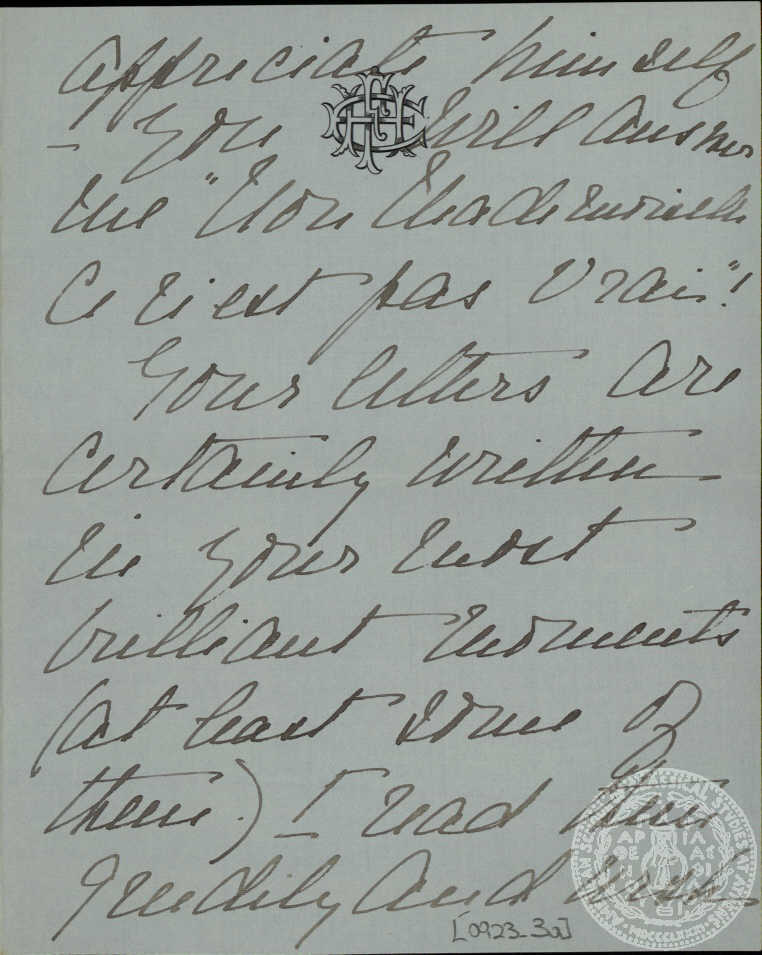 appreciate himself
- You will answer
me "Non Mademoiselle
Ce n'est pas vrai"!
Your letters are
certainly written
in your most
brilliant moments
(at least some of
them.) - I read them
greedily and
[0923-3a]